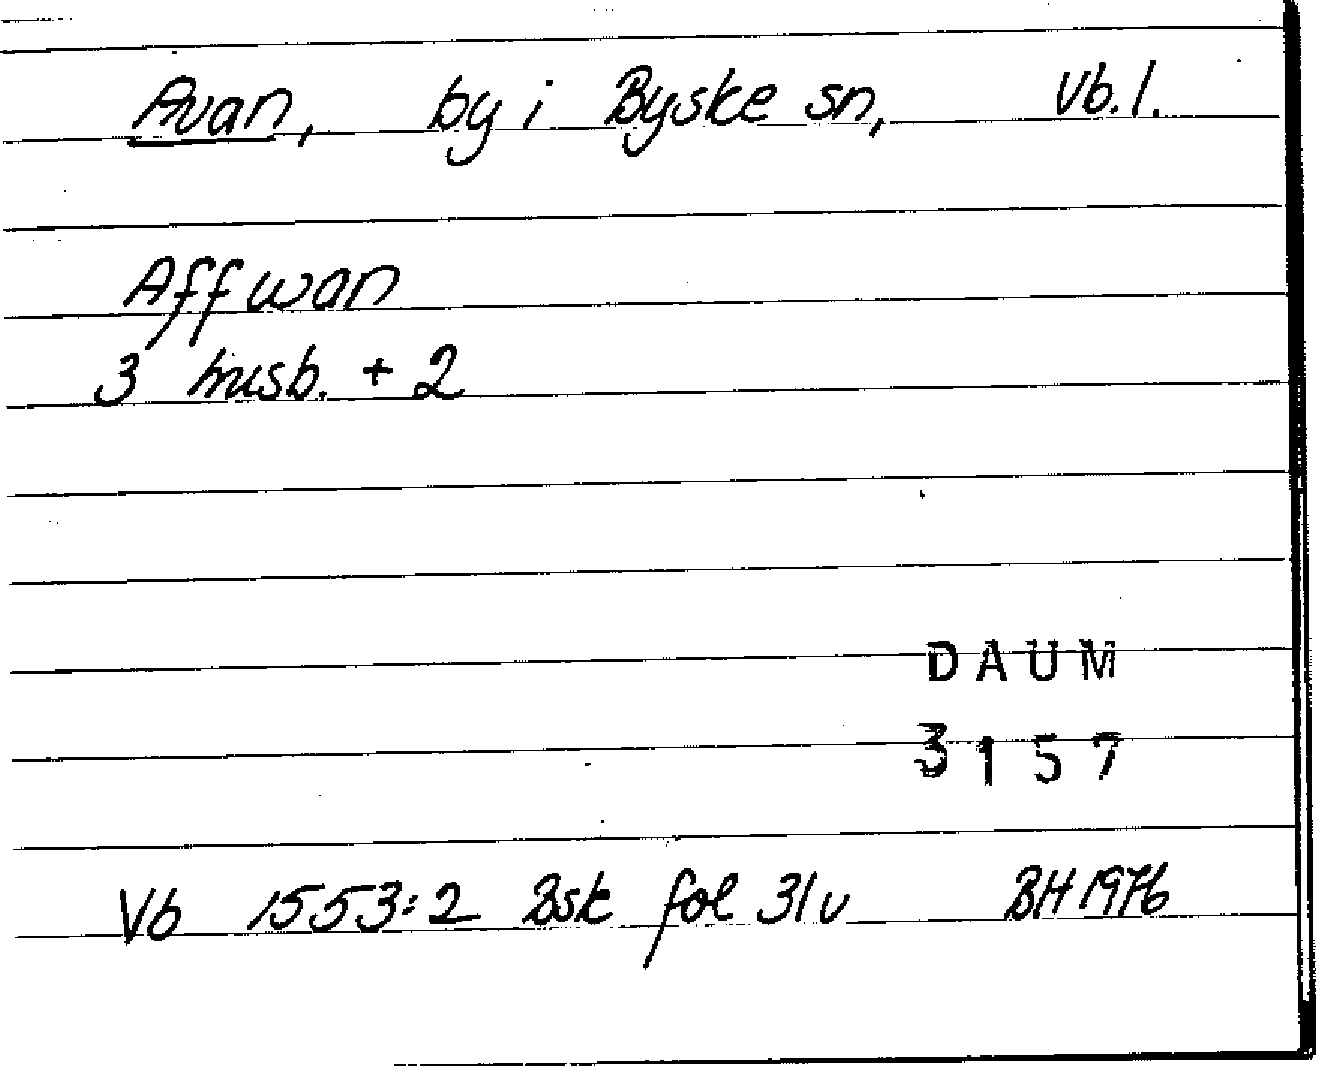 Avan, by i Byske sn, Vb. l.
Affwan
3 husb. + 2
DAUM
3157
Vb 1553:2 Bsk fol 31v BH 1976